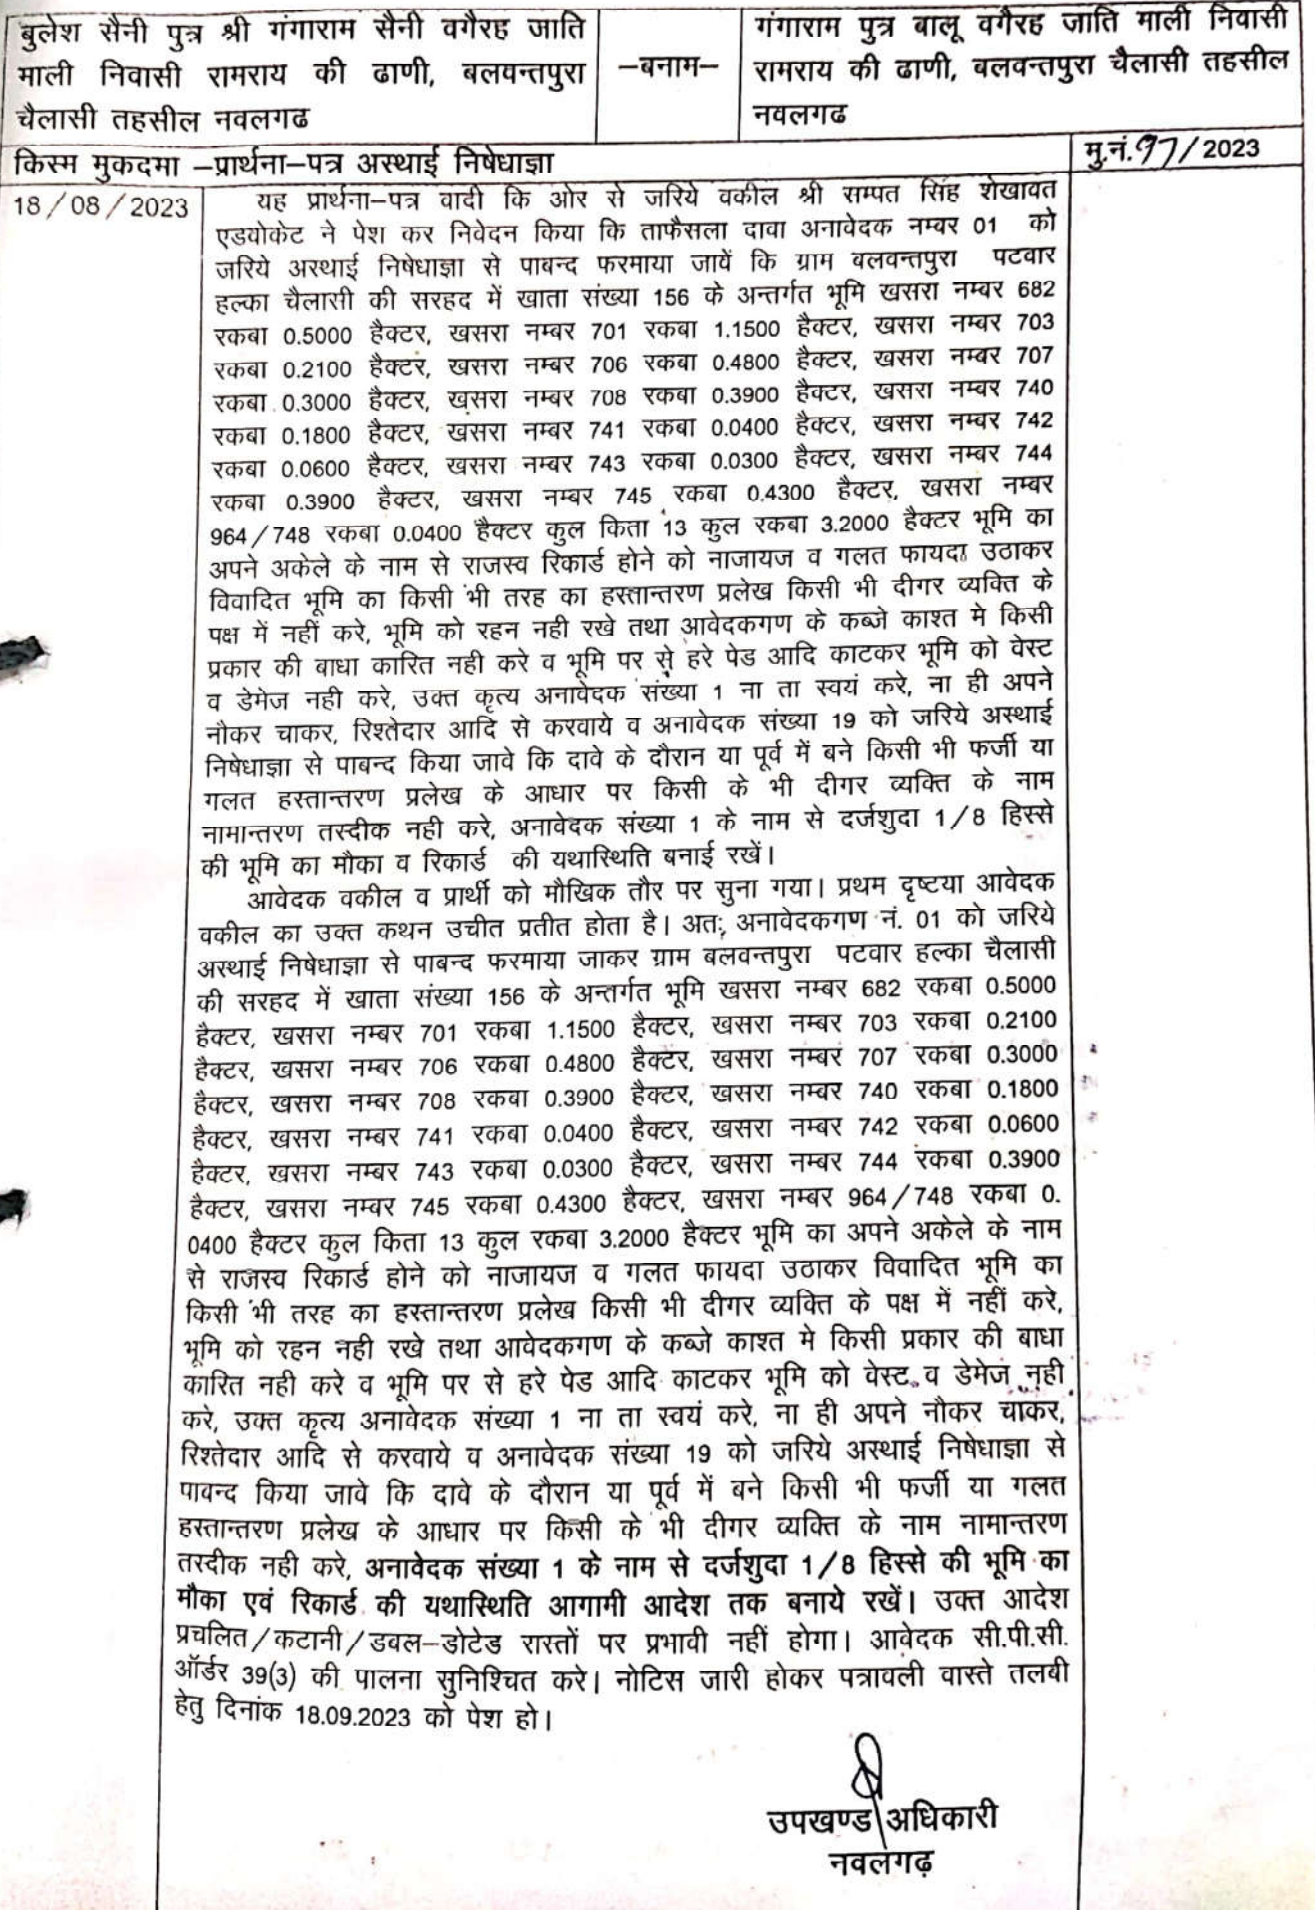 बुलेश सैनी पुत्र श्री गंगाराम सैनी वगैरह जाति
माली निवासी रामराय की ढाणी, बलवन्तपुरा
चैलासी तहसील नवलगढ
–बनाम–
गंगाराम पुत्र बालू वगैरह जाति माली निवासी
रामराय की ढाणी, बलवन्तपुरा चैलासी तहसील
नवलगढ
किस्म मुकदमा –प्रार्थना–पत्र अस्थाई निषेधाज्ञा
मु.नं.97/2023
18/08/2023
यह प्रार्थना–पत्र वादी कि ओर से जरिये वकील श्री सम्पत सिंह शेखावत
एडवोकेट ने पेश कर निवेदन किया कि ताफैसला दावा अनावेदक नम्बर 01 को
जरिये अस्थाई निषेधाज्ञा से पाबन्द फरमाया जावें कि ग्राम बलवन्तपुरा पटवार
हल्का चैलासी की सरहद में खाता संख्या 156 के अन्तर्गत भूमि खसरा नम्बर 682
रकबा 0.5000 हैक्टर, खसरा नम्बर 701 रकबा 1.1500 हैक्टर, खसरा नम्बर 703
रकबा 0.2100 हैक्टर, खसरा नम्बर 706 रकबा 0.4800 हैक्टर, खसरा नम्बर 707
रकबा 0.3000 हैक्टर, खसरा नम्बर 708 रकबा 0.3900 हैक्टर, खसरा नम्बर 740
रकबा 0.1800 हैक्टर, खसरा नम्बर 741 रकबा 0.0400 हैक्टर, खसरा नम्बर 742
रकबा 0.0600 हैक्टर, खसरा नम्बर 743 रकबा 0.0300 हैक्टर, खसरा नम्बर 744
रकबा 0.3900 हैक्टर, खसरा नम्बर 745 रकबा 0.4300 हैक्टर, खसरा नम्बर
964/748 रकबा 0.0400 हैक्टर कुल किता 13 कुल रकबा 3.2000 हैक्टर भूमि का
अपने अकेले के नाम से राजस्व रिकार्ड होने को नाजायज व गलत फायदा उठाकर
विवादित भूमि का किसी भी तरह का हस्तान्तरण प्रलेख किसी भी दीगर व्यक्ति के
पक्ष में नहीं करे, भूमि को रहन नही रखे तथा आवेदकगण के कब्जे काश्त मे किसी
प्रकार की बाधा कारित नही करे व भूमि पर से हरे पेड आदि काटकर भूमि को वेस्ट
व डेमेज नही करे, उक्त कृत्य अनावेदक संख्या 1 ना ता स्वयं करे, ना ही अपने
नौकर चाकर, रिश्तेदार आदि से करवाये व अनावेदक संख्या 19 को जरिये अस्थाई
निषेधाज्ञा से पाबन्द किया जावे कि दावे के दौरान या पूर्व में बने किसी भी फर्जी या
गलत हस्तान्तरण प्रलेख के आधार पर किसी के भी दीगर व्यक्ति के नाम
नामान्तरण तस्दीक नही करे, अनावेदक संख्या 1 के नाम से दर्जशुदा 1/8 हिस्से
की भूमि का मौका व रिकार्ड की यथास्थिति बनाई रखें।
आवेदक वकील व प्रार्थी को मौखिक तौर पर सुना गया। प्रथम दृष्टया आवेदक
वकील का उक्त कथन उचीत प्रतीत होता है। अतः, अनावेदकगण नं. 01 को जरिये
अस्थाई निषेधाज्ञा से पाबन्द फरमाया जाकर ग्राम बलवन्तपुरा पटवार हल्का चैलासी
की सरहद में खाता संख्या 156 के अन्तर्गत भूमि खसरा नम्बर 682 रकबा 0.5000
हैक्टर, खसरा नम्बर 701 रकबा 1.1500 हैक्टर, खसरा नम्बर 703 रकबा 0.2100
हैक्टर, खसरा नम्बर 706 रकबा 0.4800 हैक्टर, खसरा नम्बर 707 रकबा 0.3000
हैक्टर, खसरा नम्बर 708 रकबा 0.3900 हैक्टर, खसरा नम्बर 740 रकबा 0.1800
हैक्टर, खसरा नम्बर 741 रकबा 0.0400 हैक्टर, खसरा नम्बर 742 रकबा 0.0600
हैक्टर, खसरा नम्बर 743 रकबा 0.0300 हैक्टर, खसरा नम्बर 744 रकबा 0.3900
हैक्टर, खसरा नम्बर 745 रकबा 0.4300 हैक्टर, खसरा नम्बर 964/748 रकबा 0.
0400 हैक्टर कुल किता 13 कुल रकबा 3.2000 हैक्टर भूमि का अपने अकेले के नाम
से राजस्व रिकार्ड होने को नाजायज व गलत फायदा उठाकर विवादित भूमि का
किसी भी तरह का हस्तान्तरण प्रलेख किसी भी दीगर व्यक्ति के पक्ष में नहीं करे,
भूमि को रहन नही रखे तथा आवेदकगण के कब्जे काश्त मे किसी प्रकार की बाधा
कारित नही करे व भूमि पर से हरे पेड आदि काटकर भूमि को वेस्ट व डेमेज नही
करे, उक्त कृत्य अनावेदक संख्या 1 ना ता स्वयं करे, ना ही अपने नौकर चाकर,
रिश्तेदार आदि से करवाये व अनावेदक संख्या 19 को जरिये अस्थाई निषेधाज्ञा से
पाबन्द किया जावे कि दावे के दौरान या पूर्व में बने किसी भी फर्जी या गलत
हस्तान्तरण प्रलेख के आधार पर किसी के भी दीगर व्यक्ति के नाम नामान्तरण
तस्दीक नही करे, अनावेदक संख्या 1 के नाम से दर्जशुदा 1/8 हिस्से की भूमि का
मौका एवं रिकार्ड की यथास्थिति आगामी आदेश तक बनाये रखें। उक्त आदेश
प्रचलित/कटानी/डबल–डोटेड रास्तों पर प्रभावी नहीं होगा। आवेदक सी.पी.सी.
ऑर्डर 39(3) की पालना सुनिश्चित करे। नोटिस जारी होकर पत्रावली वास्ते तलबी
हेतु दिनांक 18.09.2023 को पेश हो।
उपखण्ड अधिकारी
नवलगढ़